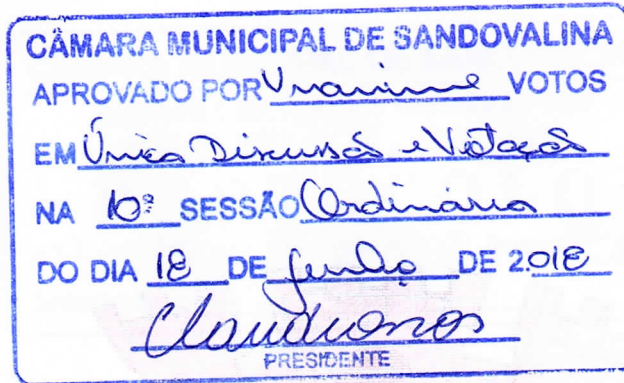 CÂMARA MUNICIPAL DE SANDOVALINA
APROVADO POR Unanime VOTOS
EM Única Discussão e Votação
NA 10ª SESSÃO Ordinária
DO DIA 18 DE junho DE 2.018
PRESIDENTE